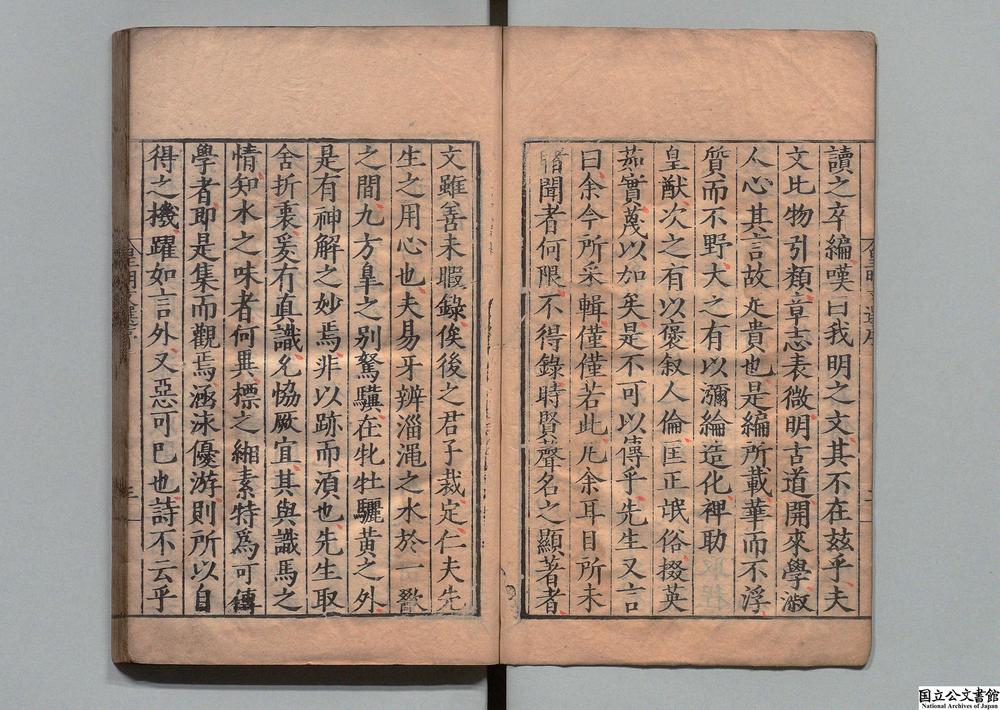 讀之卒編嘆曰我明之文其不在玆乎夫
文比物引類章志表微明古道開來學淑
人心其言故足貴也是編所載華而不浮
質而不野大之有以瀰綸造化裨助
皇猷次之有以褒叙人倫匡正氓俗掇英
茹實蔑以加矣是不可以傳乎先生又言
曰余今所采輯僅僅若此凡余耳目所未
睹聞者何限不得錄時賢聲名之顯著者
文雖善未暇錄俟後之君子裁定仁夫先
生之用心也夫易牙辨淄澠之水於一歠
之間九方皐之别駑驥在牝牡驪黄之外
是有神解之妙焉非以跡而湏也先生取
舍折衷爰有真識允恊厥宜其與識馬之
情知水之味者何異標之緗素特爲可傳
學者即是集而觀焉涵泳優游則所以自
得之機躍如言外又惡可已也詩不云乎
皇明文選序
三
国立公文書館
National Archives of Japan